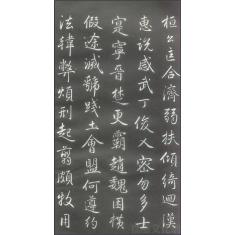 桓公匡合濟弱扶傾綺迴漢
惠説感武丁俊乂密勿多士
寔寧晉楚更霸趙魏困橫
假途滅虢踐土會盟何遵約
法韓弊煩刑起翦頗牧用